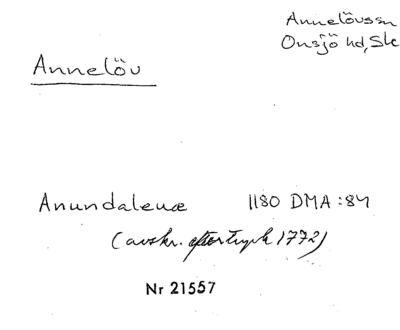 Annelövssn
Onsjö hd, Sk
Annelöv
Anundaleuæ 1180 DMA :84
(avskr. eftertryck 1772)
Nr 21557